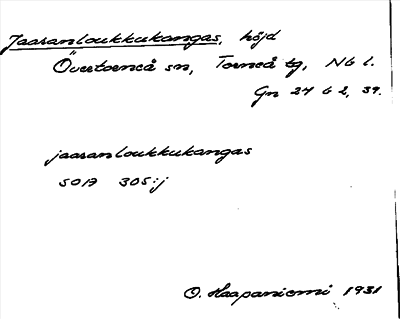 Jaaranloukkukangas, höjd
Övertorneå sn, Torneå tg, Nb l.
Gn 24 G 2, 39.
jaaranloukkukangas
SOIA 305:j
O. Haapaniemi 1931